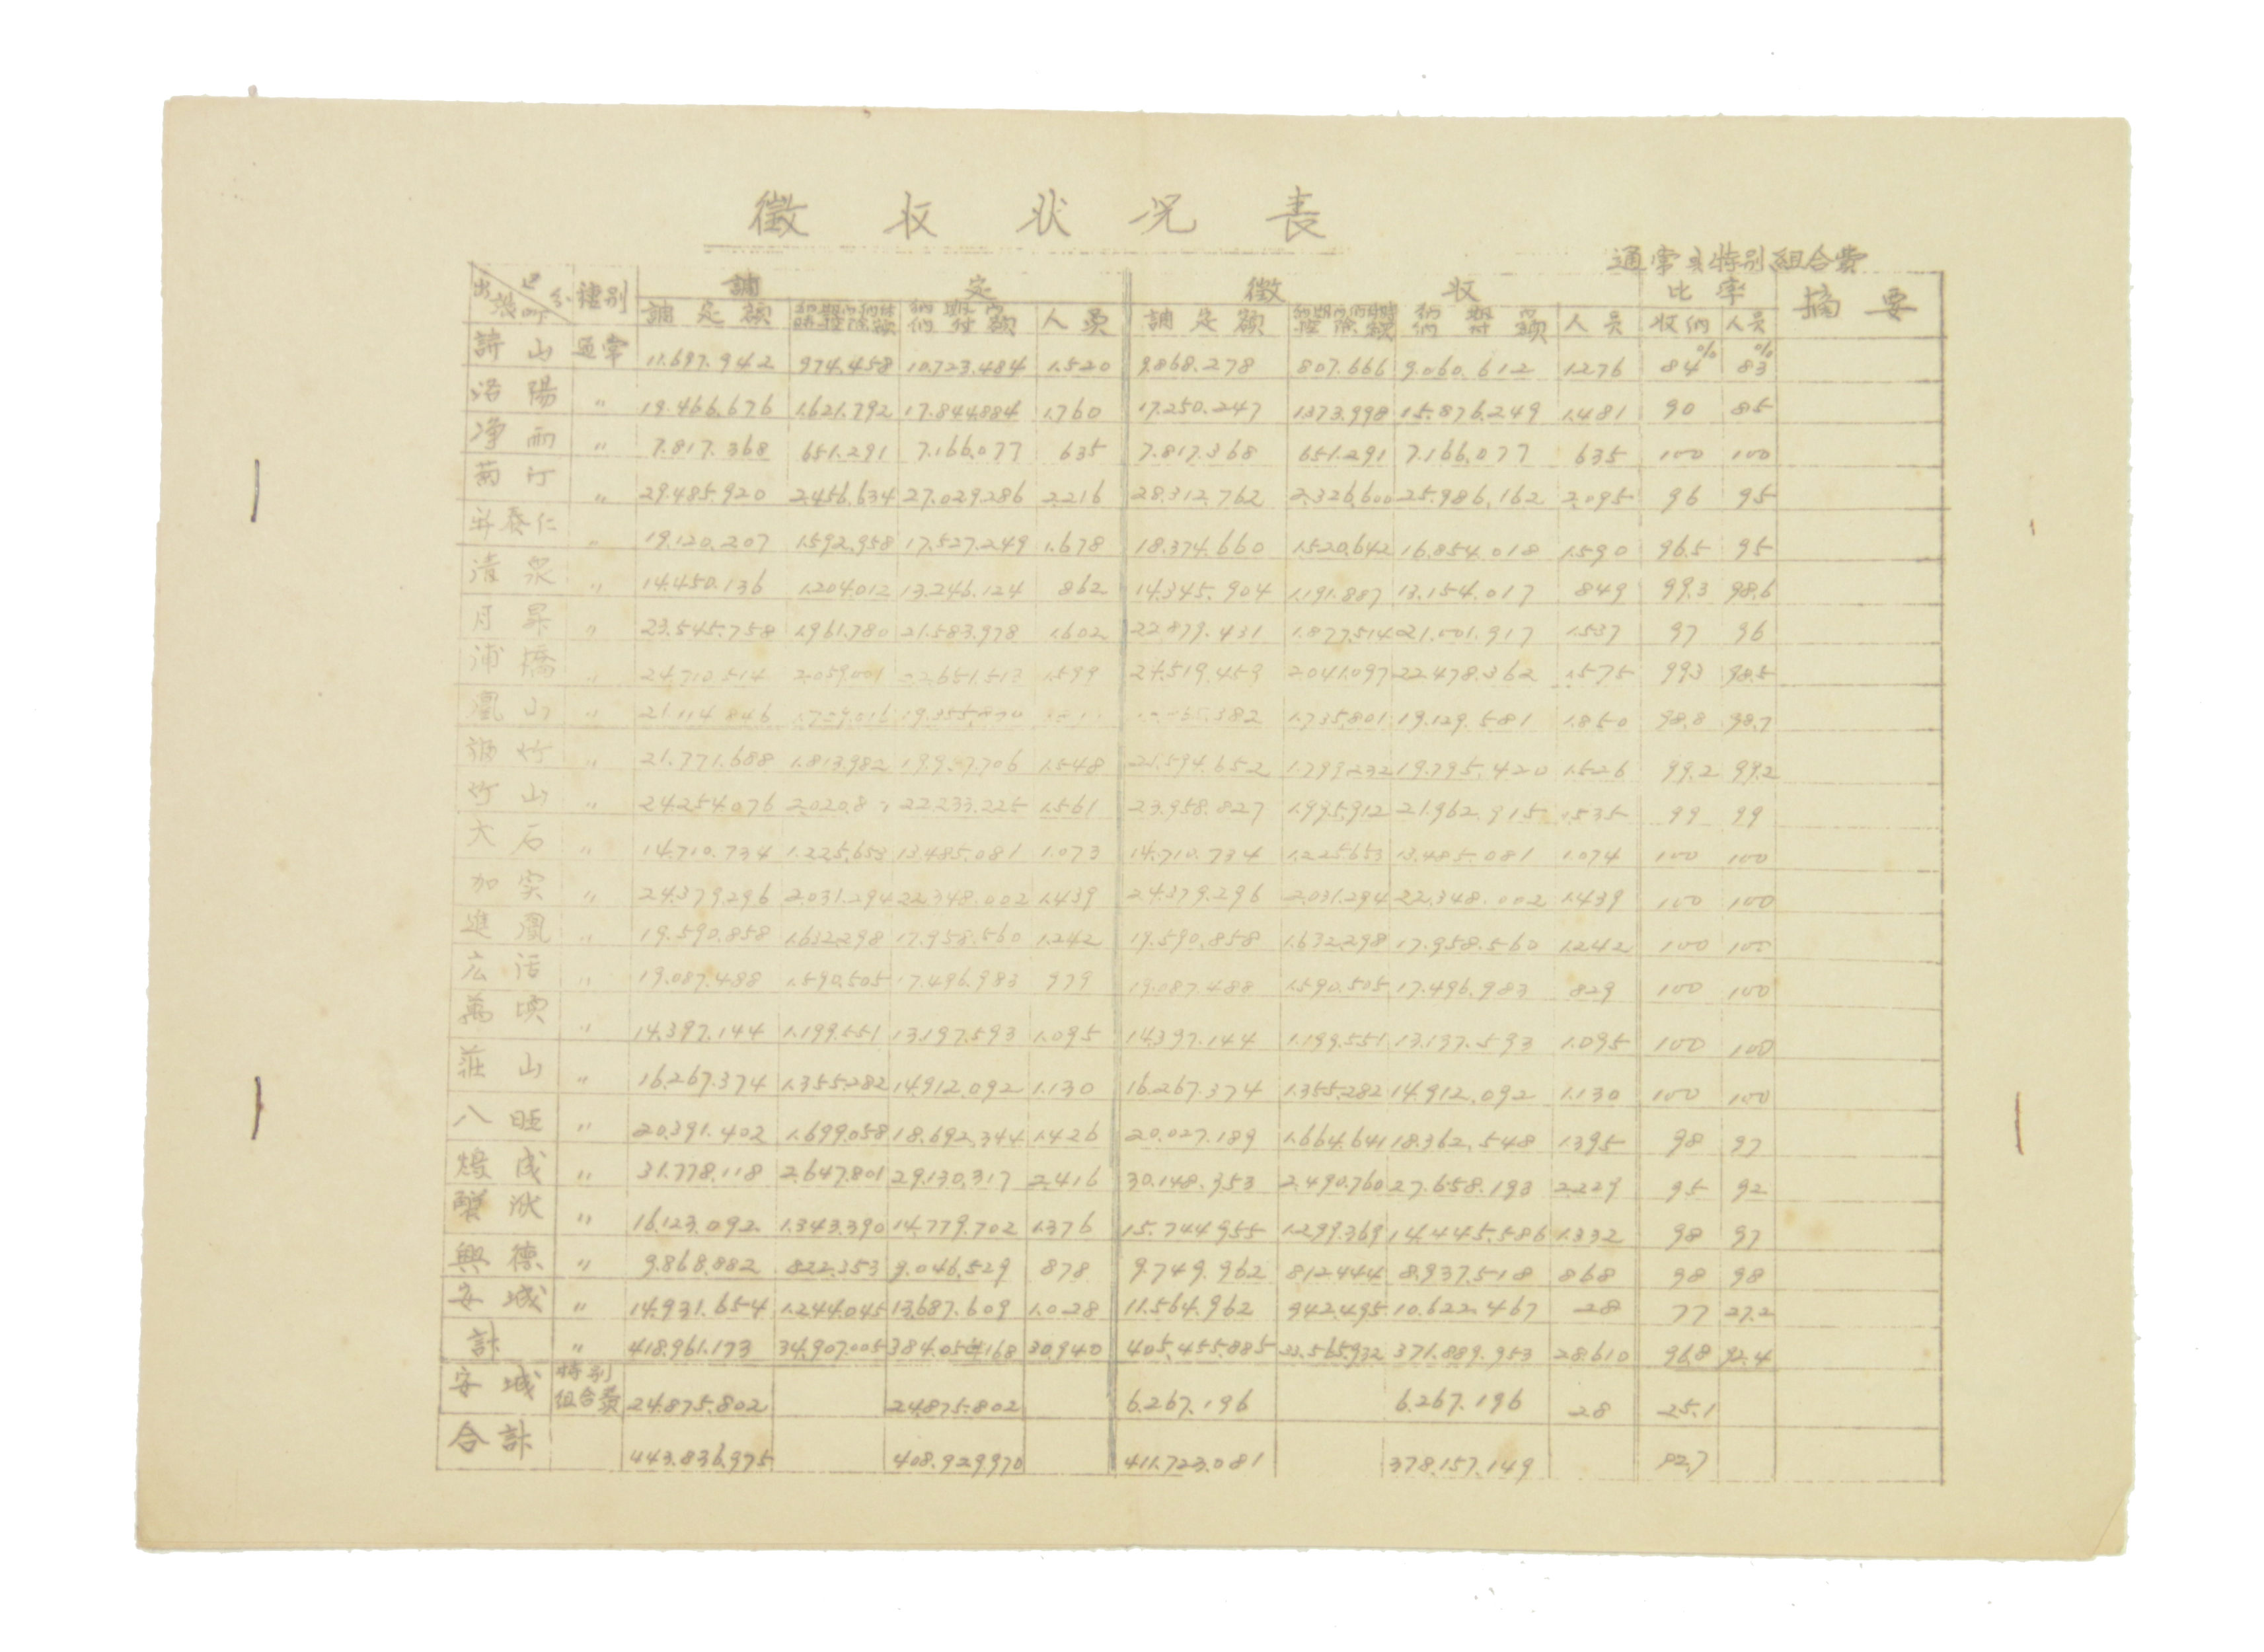 徵收状况表
通常及特別組合費
出張所 区分 種別 調定 徵收 比率 摘要
調定額 納期内納付時控除額 納期内納付額 人員 調定額 納期内納付時控除額 納期内納付額 人員 收納 人員
山 通常 11.697.942 974.458 10.723.484 1.520 9.868.278 807.666 9.060.612 1.276 84% 83%
洛陽 〃 19.466.676 1.621.792 17.844.884 1.760 17.250.247 1.373.998 15.876.249 1.481 90 85
净雨 〃 7.817.368 651.291 7.166.077 635 7.817.368 651.291 7.166.077 635 100 100
〃 29.485.920 2.456.634 27.029.286 2.216 28.312.762 2.326.600 25.986.162 2.095 96 95
泰仁 〃 19.120.207 1.592.958 17.527.249 1.678 18.374.660 1.520.642 16.854.018 1.590 96.5 95
清泉 〃 14.450.136 1.204.012 13.246.124 862 14.345.904 1.191.887 13.154.017 849 99.3 98.6
月昇 〃 23.545.758 1.961.780 21.583.978 1.602 22.879.431 1.877.514 21.001.917 1.537 97 96
浦橋 〃 24.710.514 2.059.001 22.651.513 1.599 24.519.459 2.041.097 22.478.362 1.575 99.3 98.5
鳳山 〃 21.114.846 382 1.735.801 19.129.581 1.850 98.8 98.7
竹 〃 21.771.688 1.813.982 19.957.706 1.548 21.594.652 1.799.232 19.795.420 1.526 99.2 99.2
竹山 〃 24.254.076 22.233.225 1.561 23.958.827 1.995.912 21.962.915 1.535 99 99
大石 〃 14.710.734 1.225.653 13.485.081 1.073 14.710.734 1.225.653 13.485.081 1.074 100 100
加実 〃 24.379.296 2.031.294 22.348.002 1.439 24.379.296 2.031.294 22.348.002 1.439 100 100
進鳳 〃 19.590.858 1.632.298 17.958.560 1.242 19.590.858 1.632.298 17.958.560 1.242 100 100
広活 〃 19.087.488 1.590.505 17.496.983 979 19.087.488 1.590.505 17.496.983 829 100 100
萬頃 〃 14.397.144 1.199.551 13.197.593 1.095 14.397.144 1.199.551 13.197.593 1.095 100 100
莊山 〃 16.267.374 1.355.282 14.912.092 1.130 16.267.374 1.355.282 14.912.092 1.130 100 100
八旺 〃 20.391.402 1.699.058 18.692.344 1.426 20.027.189 1.664.641 18.362.548 1.395 98 97
〃 31.778.118 2.647.801 29.130.317 2.416 30.148.953 2.490.760 27.658.193 2.229 95 92
〃 16.123.092 1.343.390 14.779.702 1.376 15.744.955 1.299.369 14.445.586 1.332 98 97
興德 〃 9.868.882 822.353 9.046.529 878 9.749.962 812.444 8.937.518 868 98 98
安城 〃 14.931.654 1.244.045 13.687.609 1.028 11.564.962 942.495 10.622.467 28 77 27.2
計 〃 418.961.173 34.907.005 384.054.168 30.940 405.455.885 33.565.932 371.889.953 28.610 96.8 92.4
安城 特別組合費 24.875.802 24.875.802 6.267.196 6.267.196 28 25.1
合計 443.836.975 408.929.970 411.723.081 378.157.149 92.7